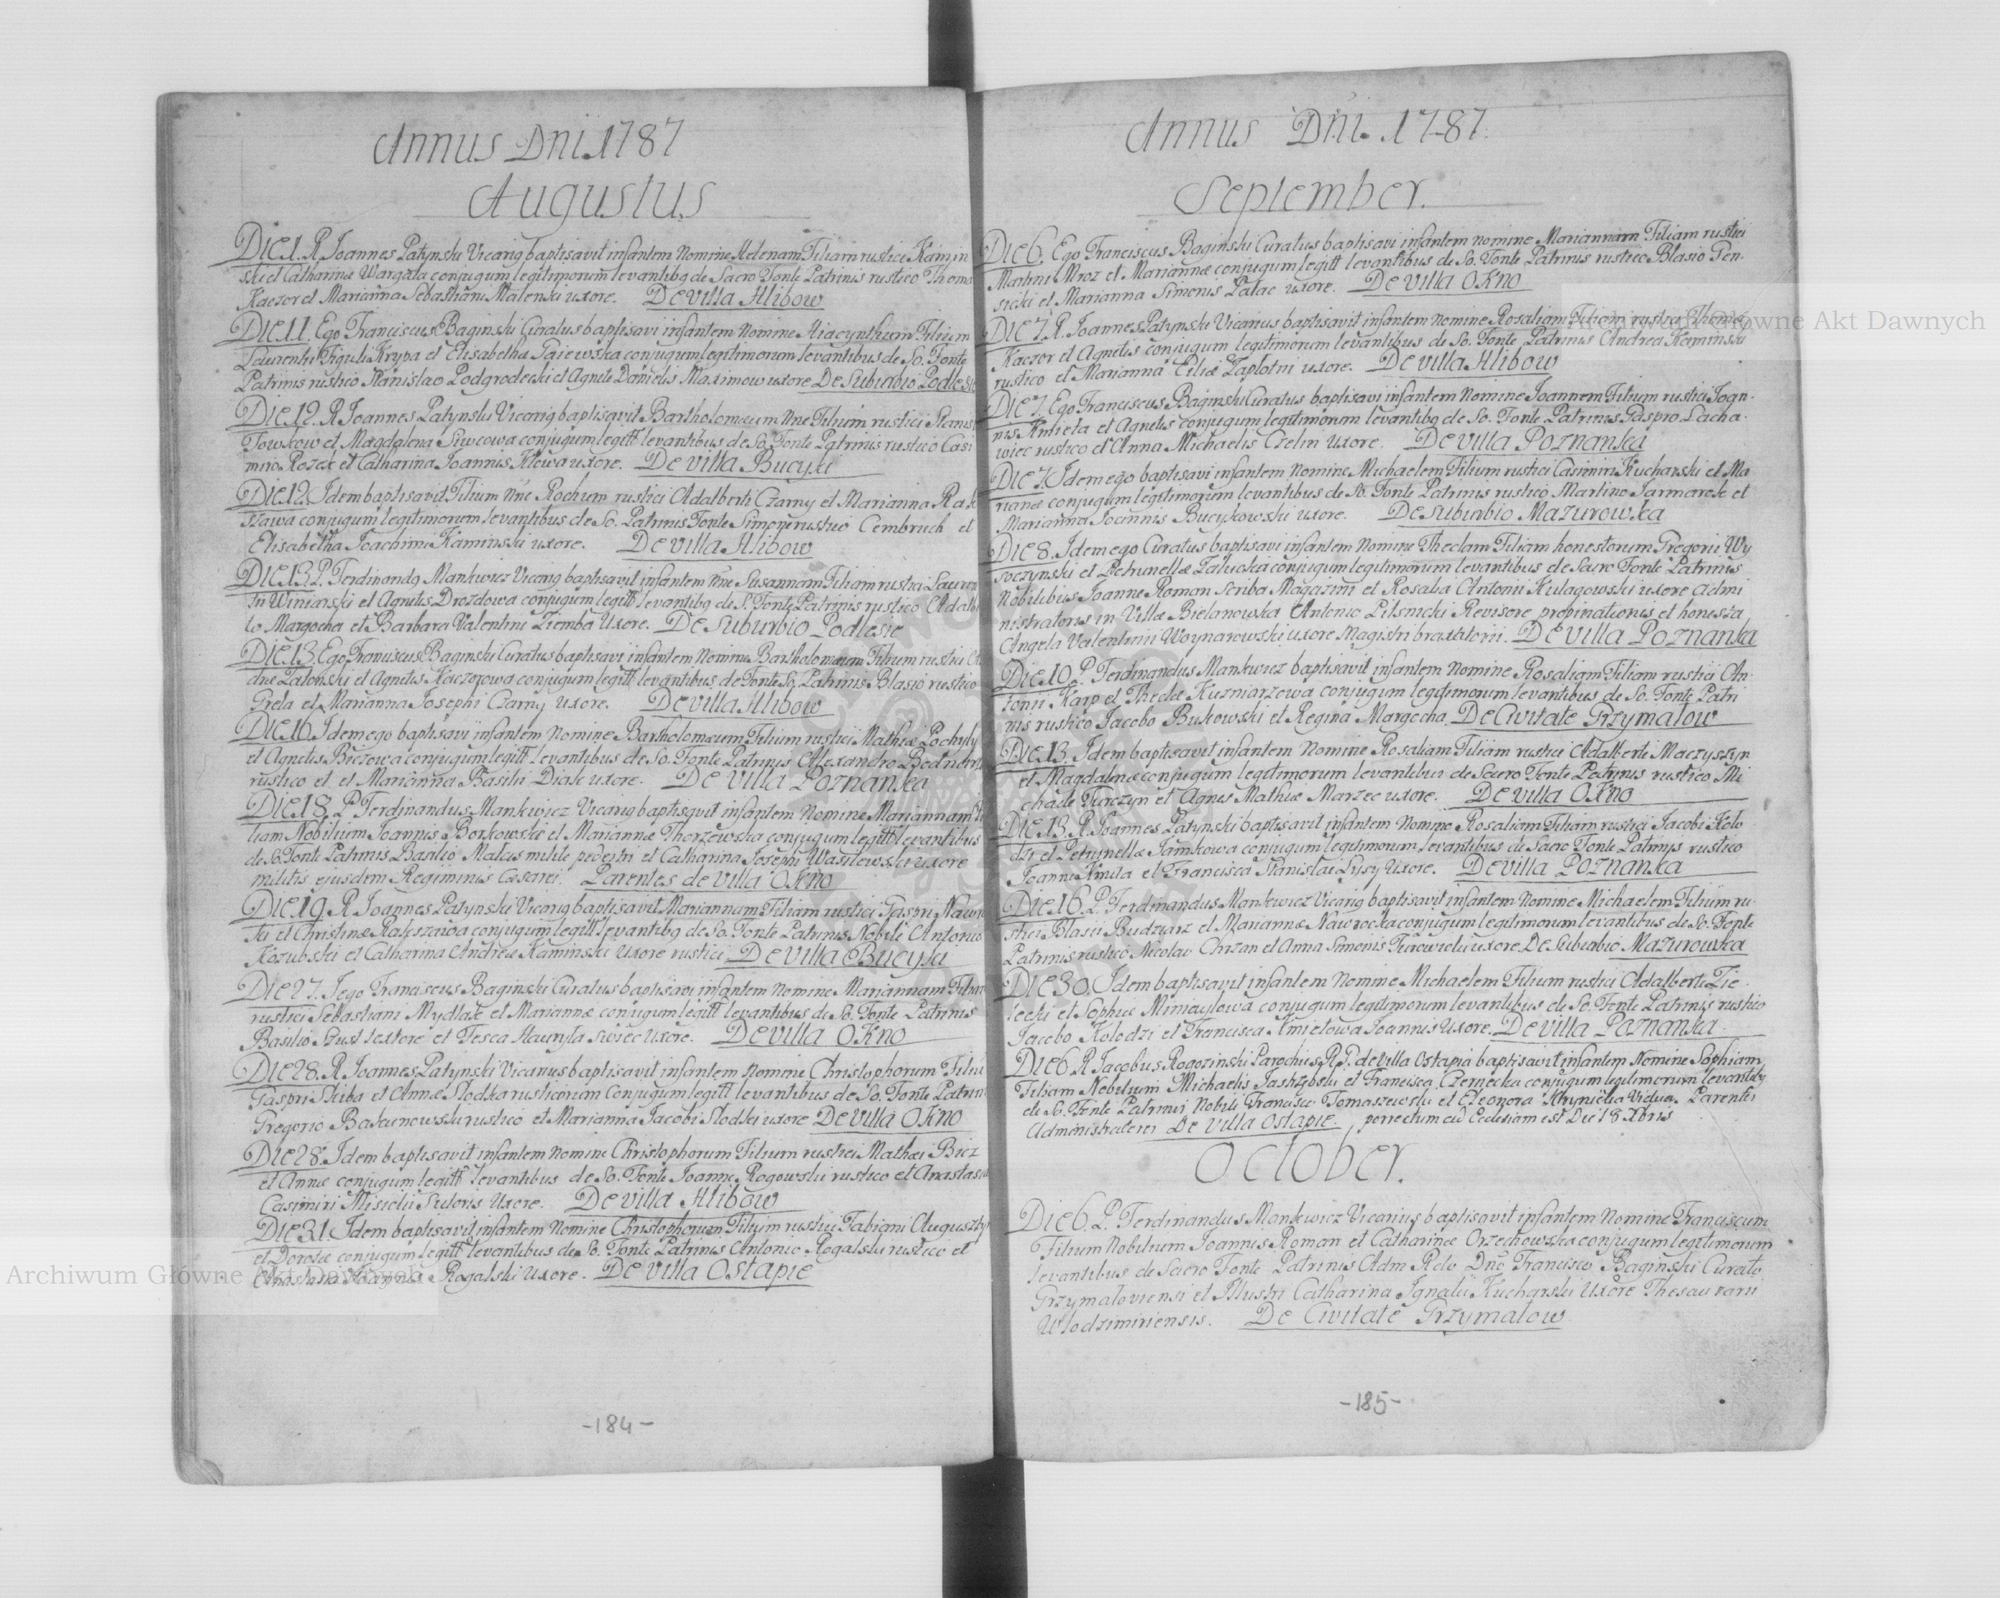 Annus Dni 1787
Augustus
Die 1. R Joannes Patynski Vicarig baptisavit infantem Nomine Helenam Filiam rustici Kamin
ski et Catharinæ conjugum legitimorum levantibg de Sacro Fonte Patrinis rustico Thoma
Kaczor et Marianna Sebastiani Malenski uxore. De Villa Hlibow
Die 11. Ego Franciscus Baginski Curatus baptisavi infantem Nomine Hiacynthum Filium
Laurentii Figuli Krypa et Elisabetha Gaiewska conjugum legitimorum levantibus de So. Fonte
Patrinis rustico Stanislao Podgrodecki et Agnete Danielis Maximow uxore De Suburbio Podlesie
Die 12. R Joannes Patynski Vicarig baptisavit Bartholomæum Nne Filium rustici Stanis
Towskow et Magdalena Siwcowa conjugum legitt levantibus de So. Fonte Patrinis rustico Casi
miro Rozek et Catharina Joannis uxore. De Villa Bucyki
Die 12. Idem baptisavit Filium Nne Rochum rustici Adalberti Czarny et Marianna
conjugum legitimorum levantibus de So. Patrinis Fonte Simone rustico Cembruch et
Elisabetha Joachimi Kaminski uxore. De Villa Hlibow
Die 13. P. Ferdinandg Mankwicz Vicarig baptisavit infantem Nne Susannam Filiam rustici Lauren
tii Winiarski et Agnetis Drozdowa conjugum legitt levantibg de S. Fonte Patrinis rustico Adalb
to Margocha et Barbara Valentini Ziemba Uxore. De Suburbio Podlesie
Die 13. Ego Franciscus Baginski Curatus baptisavi infantem Nomine Bartholomæum Filium rustici
dræ Patonski et Agnetis Kaczorowa conjugum legitt levantibus de Fonte So. Patrinis Blasio rustico
Grela et Marianna Josephi Czarny uxore. De Villa Hlibow
Die 16. Idem ego baptisavi infantem Nomine Bartholomæum Filium rustici Mathiæ Pochyly
et Agnetis Biezowa conjugum legitt levantibus de So. Fonte Patrinis Alexandro Bednarz
rustico et et Marianna Basilii Diak uxore. De Villa Poznanka
Die 18. P Ferdinandus Mankwicz Vicarig baptisavit infantem Nomine Mariannam Fi
liam Nobilium Joannis Borkowski et Mariannæ Thorzewska conjugum legitt levantibus
de So. Fonte Patrinis Basilio Matus milite pedestri et Catharina Josephi Wasilewski uxore
militis ejusdem Regiminis Cæsarei. Parentes de Villa Okno
Die 19. R Joannes Patynski Vicarig baptisavit Mariannam Filiam rustici Gaspri
et Christinæ conjugum legitt levantibg de So. Fonte Patrinis Nobili Antonio
Kozubski et Catharina Andreæ Kaminski Uxore rustici. De Villa Bucyki
Die 27. Iego Franciscus Baginski Curatus baptisavi infantem Nomine Mariannam Filiam
rustici Sebastiani Mydlak et Mariannæ conjugum legitt levantibus de So. Fonte Patrinis
Basilio textore et Tesca Uxore. De Villa Okno
Die 28. R Joannes Patynski Vicarius baptisavit infantem Nomine Christophorum Filiu
Gaspri Skiba et Annæ Slodka rusticorum Conjugum legitt levantibus de So. Fonte Patrin
Gregorio Bakunowski rustico et Marianna Jacobi Slodki uxore De Villa Okno
Die 28. Idem baptisavit infantem Nomine Christophorum Filium rustici Mathæi Biez
et Annæ conjugum legitt levantibus de So. Fonte Joanne Rogowski rustico et Anastasia
Casimiri Sutoris Uxore. De Villa Hlibow
Die 31. Idem baptisavit infantem Nomine Christophorum Filium rustici Fabiani Augustyn
et Dorotæ conjugum legitt levantibus de So. Fonte Patrinis Antonio Rogalski rustico et
Rogalski Uxore. De Villa Ostapie
-184-
Annus Dni. 1787.
September.
Die 6. Ego Franciscus Baginski Curatus baptisavi infantem nomine Mariannam Filiam rustici
Martini Mroz et Mariannæ conjugum legitt levantibus de So. Fonte Patrinis rustico Blasio Gen-
sicki et Marianna Simonis Palac uxore. De Villa Okno
Die 7. R. Joannes Patynski Vicarius baptisavit infantem nomine Rosaliam Filiam rustici Thomæ
Kaczor et Agnetis conjugum legitimorum levantibus de So. Fonte Patrinis Andrea Kaminski
rustico et Marianna Eliæ Zaplotni uxore. De Villa Hlibow
Die 7. Ego Franciscus Baginski Curatus baptisavi infantem Nomine Joannem Filium rustici Joan-
nis Kmieta et Agnetis conjugum legitimorum levantibg de So. Fonte Patrinis Gaspro Lacha-
wiec rustico et Anna Michaelis Czelin Uxore. De Villa Poznanka
Die 7. Idem ego baptisavi infantem Nomine Michaelem Filium rustici Casimiri Kucharski et Ma
rianæ conjugum legitimorum levantibus de So. Fonte Patrinis rustico Martino Jarmarek et
Marianna Joannis Bucykowski uxore. De Suburbio Mazurowka
Die 8. Idem ego Curatus baptisavi infantem Nomine Theclam Filiam honestorum Gregorii Wy
soczynski et Petrunellæ Zalucka conjugum legitimorum levantibus de Sacro Fonte Patrinis
Nobilibus Joanne Roman Scriba Magazini et Rosalia Antonii Kulagowski uxore Admi
nistratoris in Villa Bielanowska Antonio Litsnicki Revisore propinationis et honesta
Angela Valentini Woynarowski uxore Magistri braxatorii. De Villa Poznanka
Die 10. P. Ferdinandus Mankwicz baptisavit infantem Nomine Rosaliam Filiam rustici An-
tonii Karp et Theclæ Kuzniarzowa conjugum legitimorum levantibus de So. Fonte Patri
nis rustico Jacobo Bukowski et Regina Margocha. De Civitate Grzymalow
Die 13. Idem baptisavit infantem Nomine Rosaliam Filiam rustici Adalberti Maczyszyn
et Magdalenæ conjugum legitimorum levantibus de Sacro Fonte Patrinis rustico Mi
chaele Turczyn et Agnes Mathiæ Marzec uxore. De Villa Okno
Die 13. R. Joannes Patynski baptisavit infantem Nomine Rosaliam Filiam rustici Jacobi Kolo
dzi et Petrunellæ Jamkowa conjugum legitimorum levantibus de Sacro Fonte Patrinis rustico
Joanne Kmita et Francisca Stanislai Lysy Uxore. De Villa Poznanka
Die 16. P. Ferdinandus Mankwicz Vicarig baptisavit infantem Nomine Michaelem Filium ru-
stici Blasii Budziarz et Mariannæ Nawrocka conjugum legitimorum levantibus de So. Fonte
Patrinis rustico Nicolao Chrzan et Anna Simonis uxore De Suburbio Mazurowka
Die 30. Idem baptisavit infantem Nomine Michaelem Filium rustici Adalberti Zie-
lecki et Sophiæ conjugum legitimorum levantibus de So. Fonte Patrinis rustico
Jacobo Kolodzi et Francisca Kmietowa Joannis Uxore. De Villa Poznanka.
Die 6. R Jacobus Rogozinski Parochus R.G. de Villa Ostapia baptisavit infantem Nomine Sophiam
Filiam Nobilium Michaelis Jastrzębski et Francisca Czernecka conjugum legitimorum levantibg
de So. Fonte Patrinis Nobili Francisco Tomaszewski et Eleonora Hrynicka Vidua. Parentes
Administratores De Villa Ostapie, perrectum ad Ecclesiam est Die 18 Xbris
October.
Die 6. P. Ferdinandus Mankwicz Vicarius baptisavit infantem Nomine Franciscum
Filium Nobilium Joannis Roman et Catharinæ Orzechowska conjugum legitimorum
levantibus de Sacro Fonte Patrinis Adm Rdo Dno Francisco Baginski Curato
Grzymaloviensi et Illustri Catharina Ignatii Kucharski Uxore Thesaurarii
Wlodzimiriensis. De Civitate Grzymalow
-185-
Archiwum Główne Akt Dawnych
Archiwum Główne Akt Dawnych